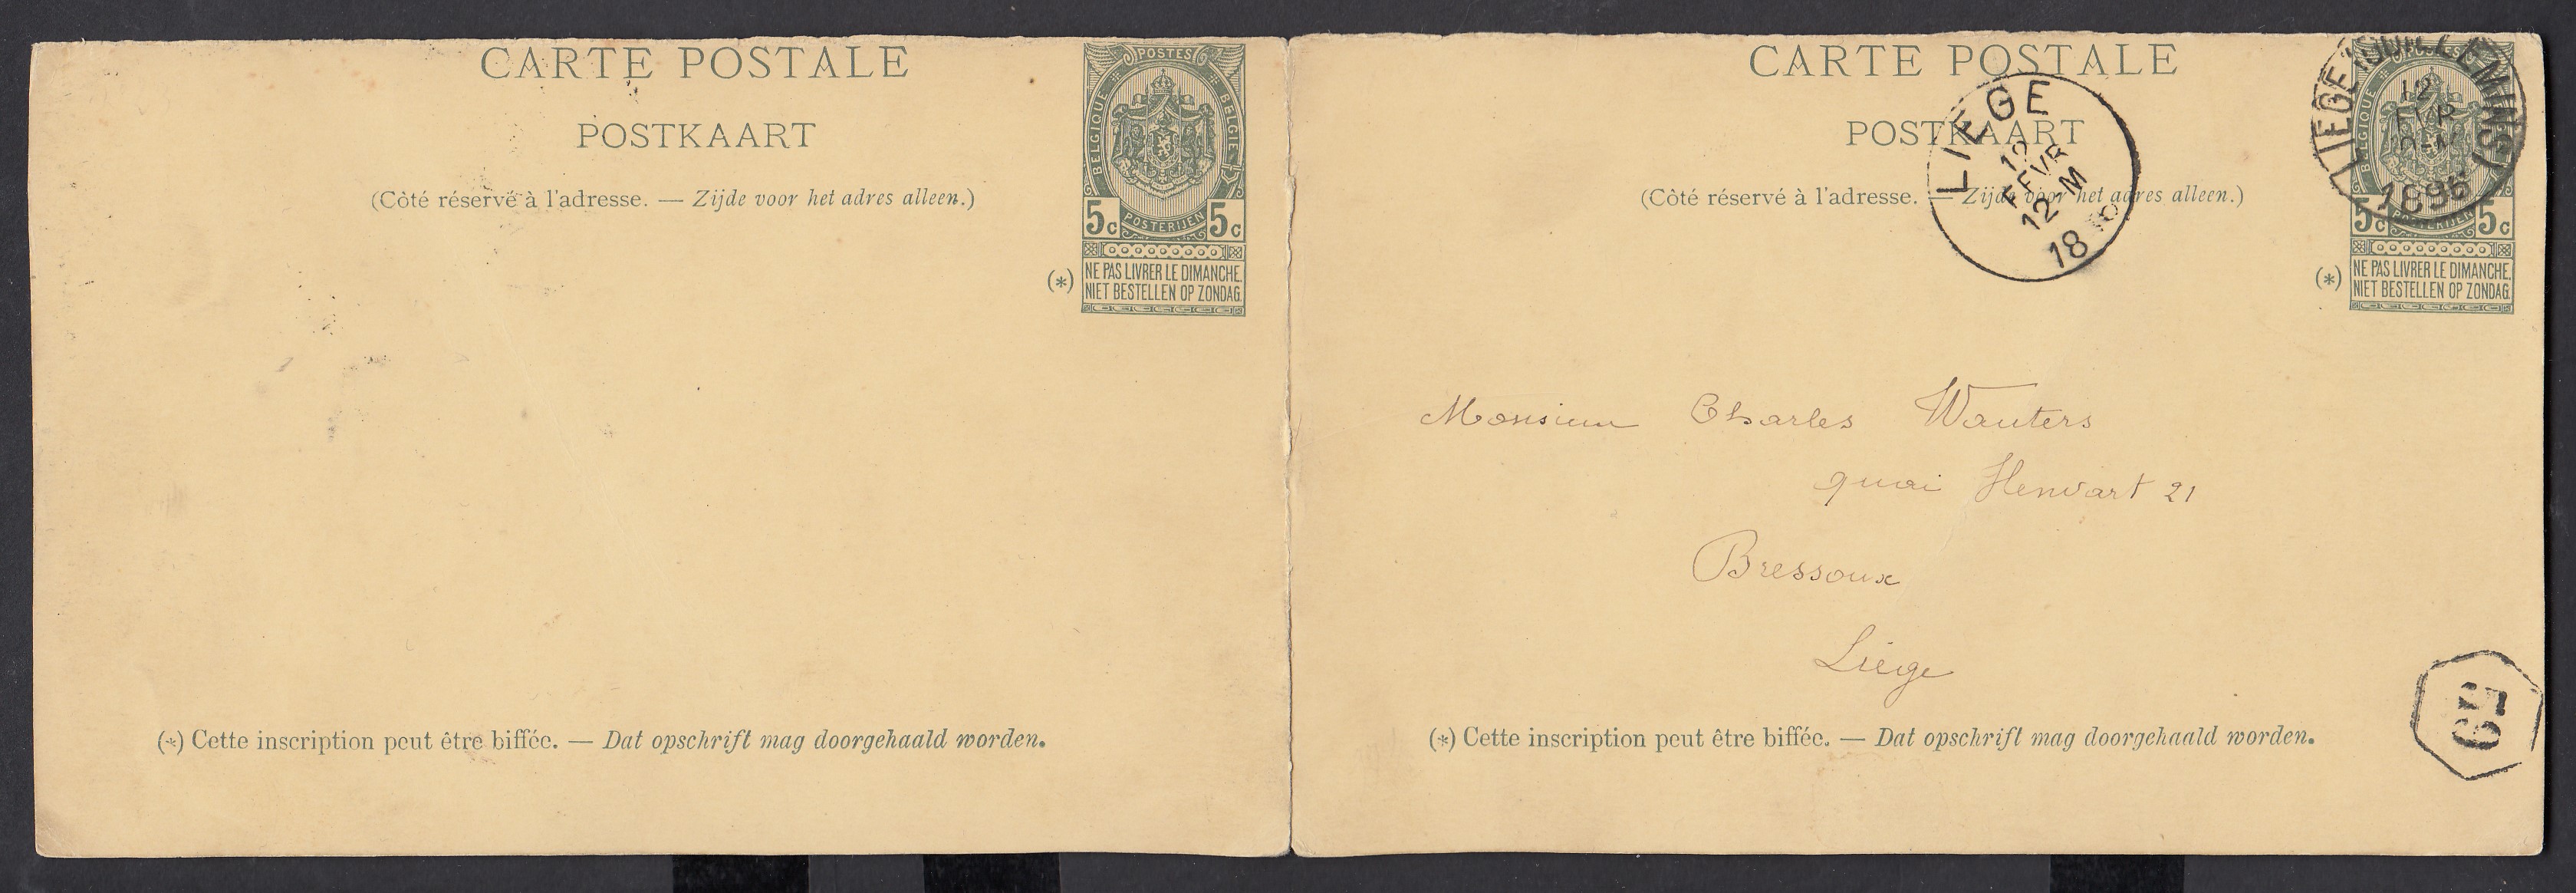 CARTE POSTALE
POSTKAART
(Côté réservé à l'adresse. — Zijde voor het adres alleen.)
POSTES
BELGIQUE
BELGIE
5c POSTERIJEN 5c
(*) NE PAS LIVRER LE DIMANCHE.
NIET BESTELLEN OP ZONDAG.
(*) Cette inscription peut être biffée. — Dat opschrift mag doorgehaald worden.
CARTE POSTALE
POSTKAART
(Côté réservé à l'adresse. — Zijde voor het adres alleen.)
LIEGE
12
FEVR
12 M
18
POSTES
BELGIQUE
LIEGE (GUILLEMINS)
12
1895
5c POSTERIJEN 5c
(*) NE PAS LIVRER LE DIMANCHE.
NIET BESTELLEN OP ZONDAG.
Monsieur Charles Wauters
quai Henvart 21
Bressoux
Liége
(*) Cette inscription peut être biffée. — Dat opschrift mag doorgehaald worden.